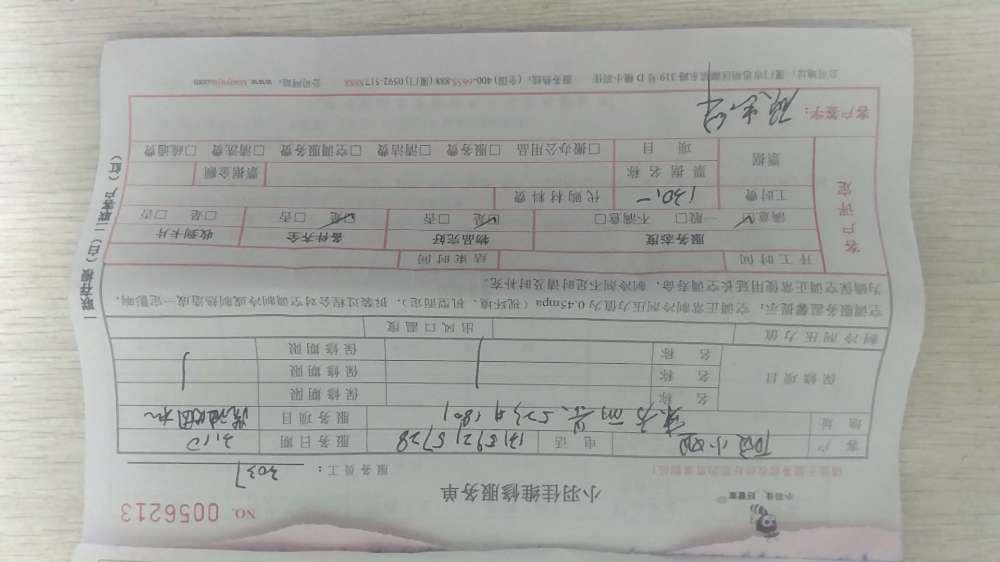 小羽佳 好管家
小羽佳维修服务单
NO. 0056213
服务员工: 3037
客户 小姐 电话 服务日期 3.10
地址 服务项目
保修项目
名称 保修期限
名称 保修期限
名称 保修期限
制冷剂压力值 出风口温度
空调服务温馨提示:空调正常制冷剂压力值为0.45mpa(视环境、机型而定);拆装过程会对空调制冷或制热造成一定影响,
为确保空调正常使用延长空调寿命,制冷剂不足时请及时补充。
客户评定
开工时间 结束时间
服务态度 物品完好 备件齐全 收到卡片
满意☑ 一般□ 不满意□ ☑是 □否 ☑是 □否 □是 □否
工时费 130,- 代购材料费
票据 票据名称 票据金额
项目 □搬办公用品 □服务费 □清洁费 □空调服务费 □清洗费 □疏通费
客户签字:
公司地址:厦门市思明区湖滨东路319号D幢小羽佳 服务热线:(全国)400-6655-888(厦门)0592-5175888 公司网站:www.xiaoyujia.com
一联存根(白)二联客户(红)